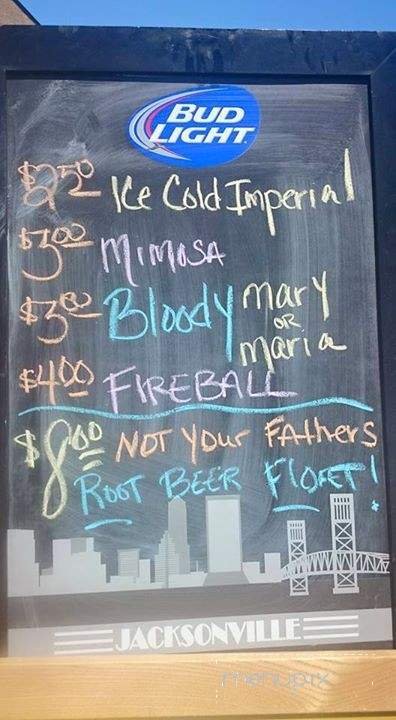 BUD
LIGHT
$2.50 Ice Cold Imperial
$3.00 MIMOSA
$3.00 Bloody Mary
OR
Maria
$4.00 FIREBALL
$8.00 NOT YOUR FATHERS
ROOT BEER FLOAT!
JACKSONVILLE
menupix